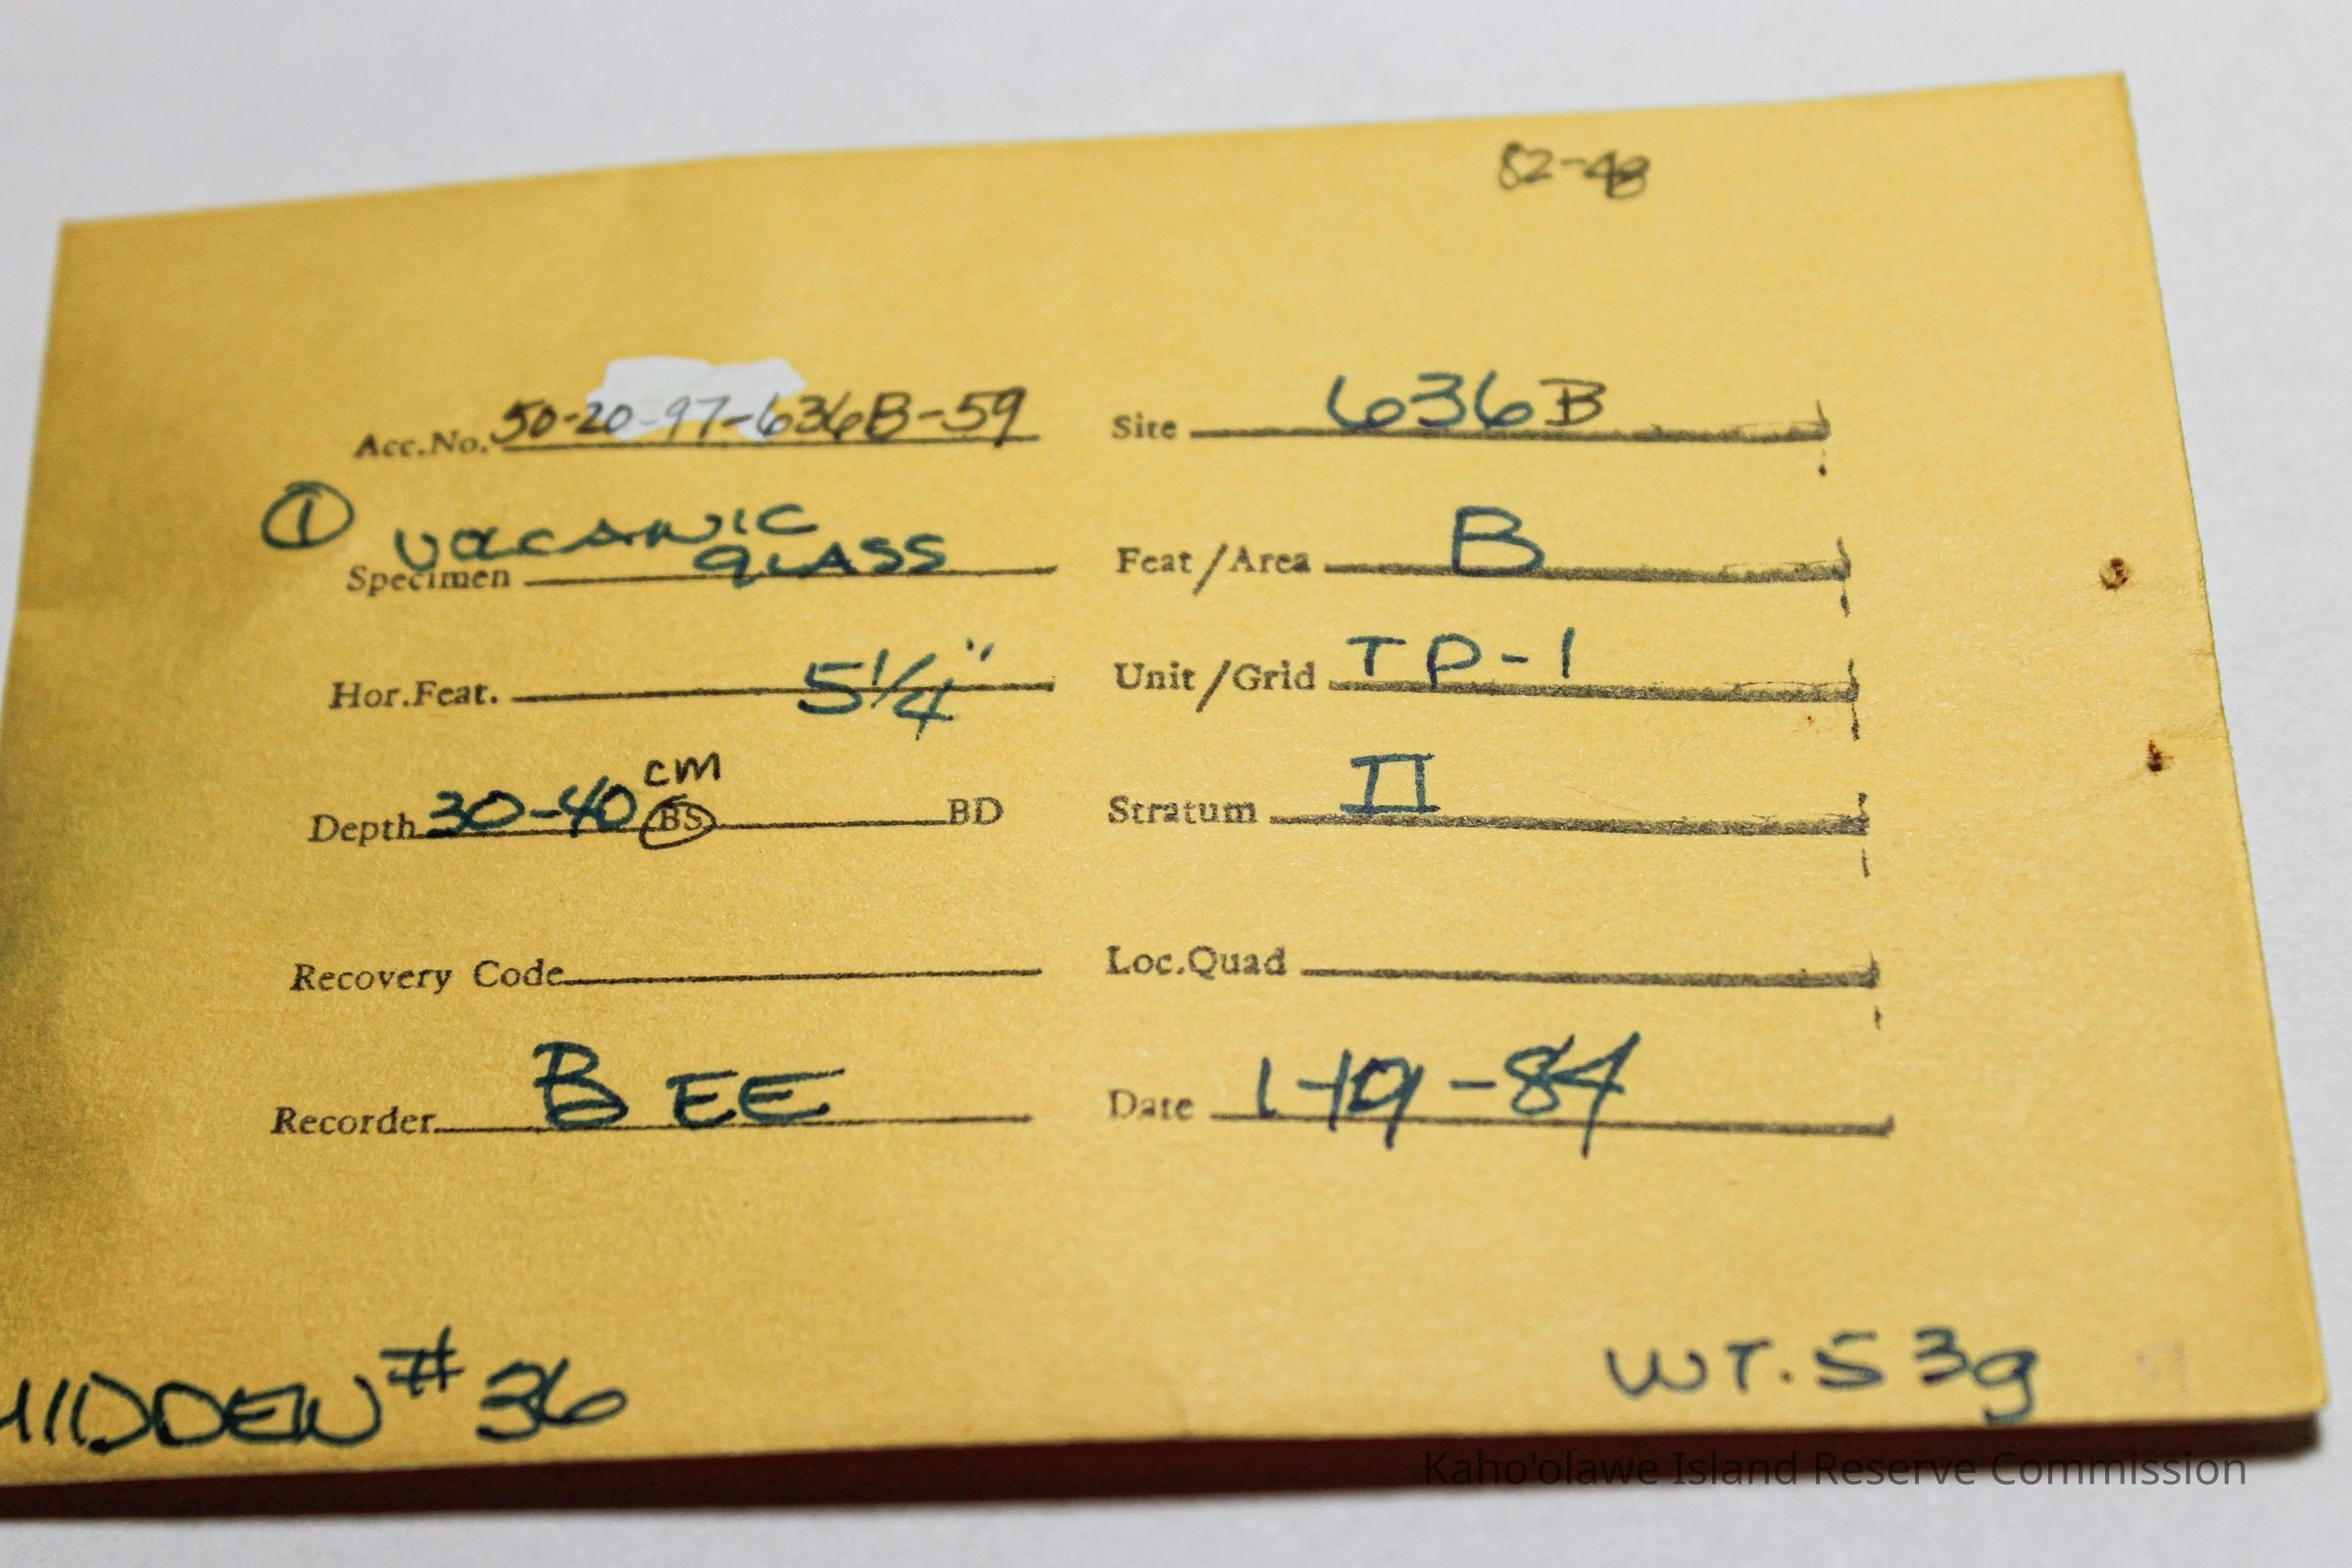 82-48
Acc.No. 50-20-97-636B-59 Site 636B
① VOLCANIC
GLASS
Specimen Feat/Area B
Hor.Feat. 5 1/4" Unit/Grid TP-1
cm
Depth 30-40 BS BD Stratum II
Recovery Code Loc.Quad
Recorder BEE Date 1-19-84
MIDDEN # 36 WT. 53g
Kaho'olawe Island Reserve Commission